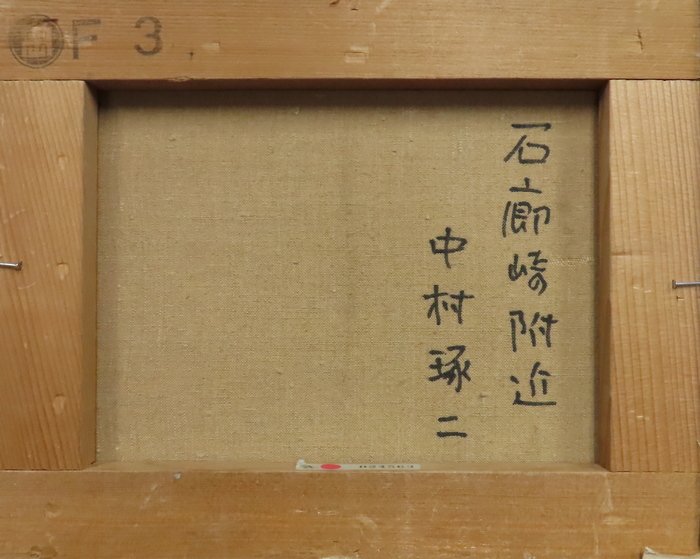 F 3
石廊崎附近
中村琢二